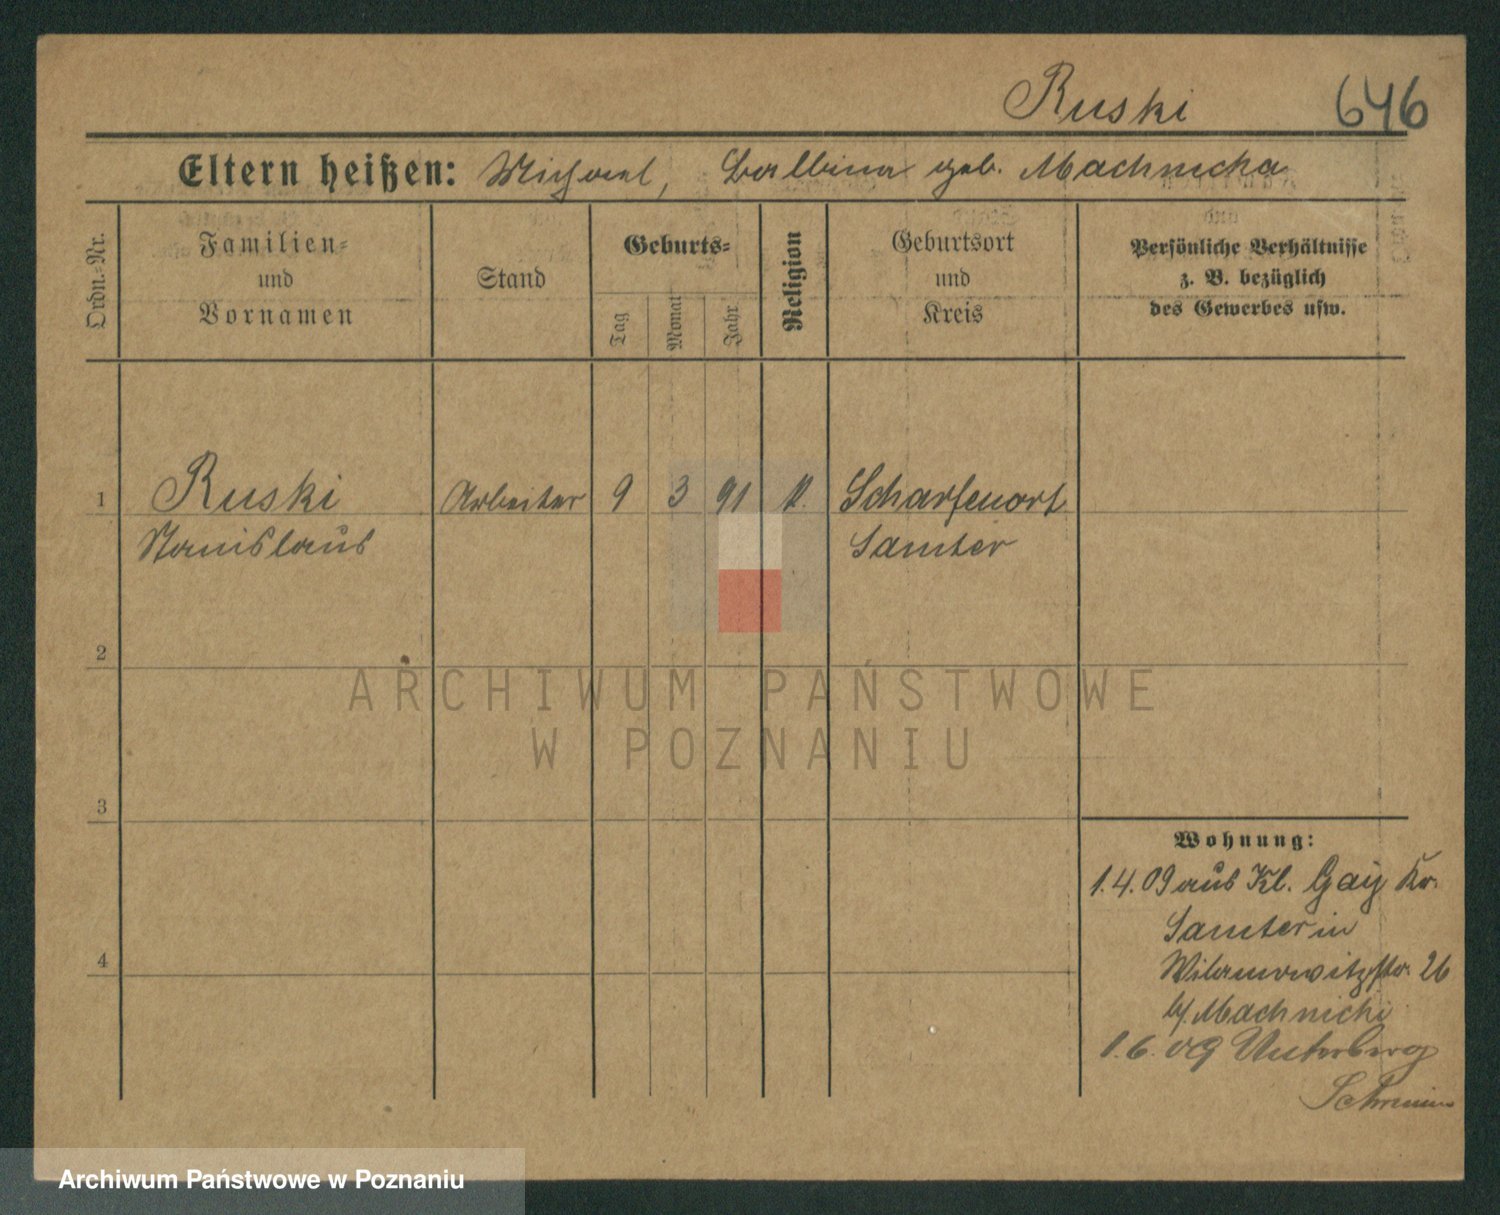 Ruski 646
Eltern heißen: Michael, Balbina geb. Machnicka
Ordn.=Nr.
Familien=
und
Vornamen
Stand
Geburts=
Tag
Monat
Jahr
Religion
Geburtsort
und
Kreis
Persönliche Verhältnisse
z. B. bezüglich
des Gewerbes usw.
1 Ruski Arbeiter 9 3 91 k. Scharfenort
Stanislaus Samter
2
3
4
Wohnung:
1.4.09 aus Kl. Gay Kr.
Samter in
Wilamowitzstr. 26
b/ Machnicki
1.6.09 Unterberg
Schrimm
ARCHIWUM PAŃSTWOWE
W POZNANIU
Archiwum Państwowe w Poznaniu